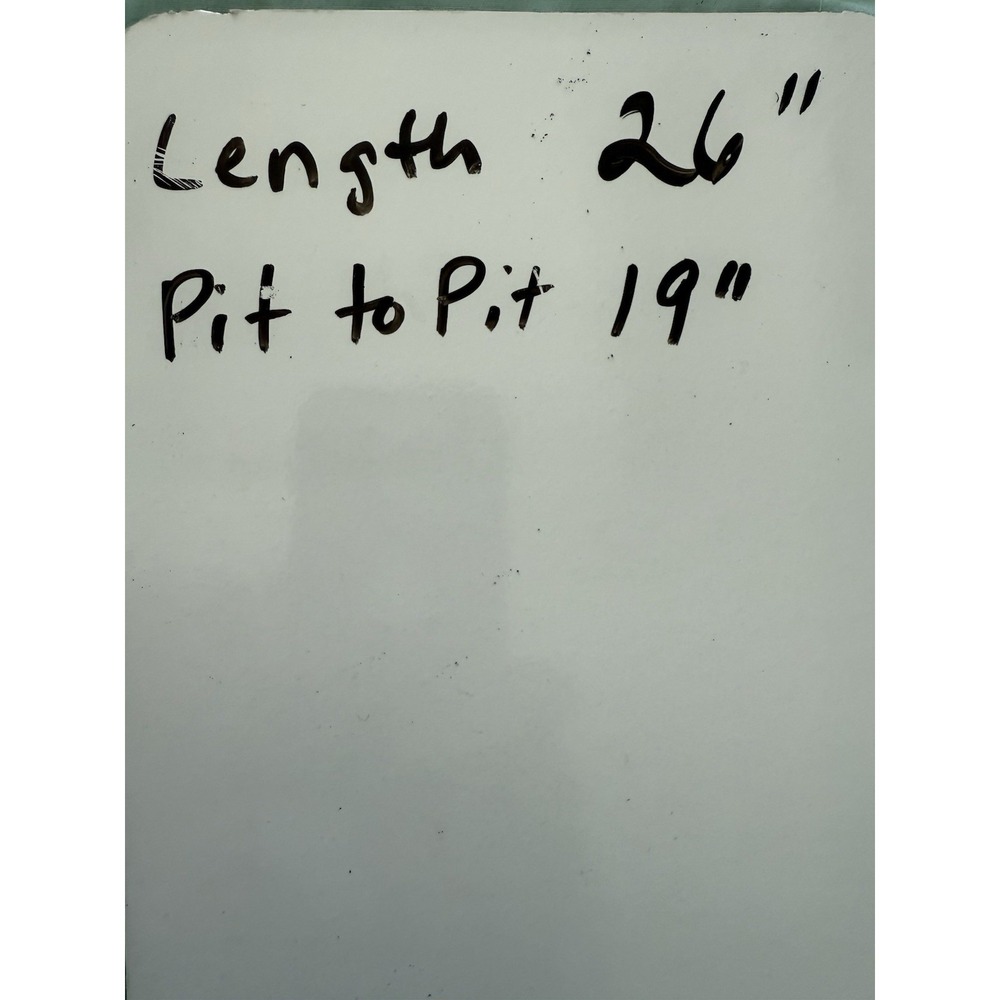 Length 26"
Pit to Pit 19"